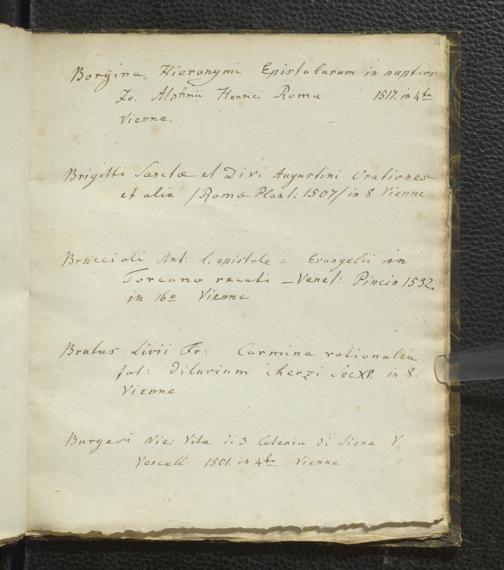 Borgina Hieronymi Epistolarum in nuptiis
Jo. Henrici Roma 1517. in 4to
Vienne.
Brigitti Sanctæ et Divi Augustini Orationes
et alia /Romæ Plant: 1507/ in 8. Vienne
Bruccioli Ant: l'epistole e Evangelii in
Torcano recati – Venet: Pincio 1532.
in 16o Vienne
Brutus Livii Fr: Carmina rationalia
fat: diluvium Sec XV. in 8.
Vienne
Burgesi Nic: Vita di S Catenia di Siena V
Vercell 1501. in 4to Vienne